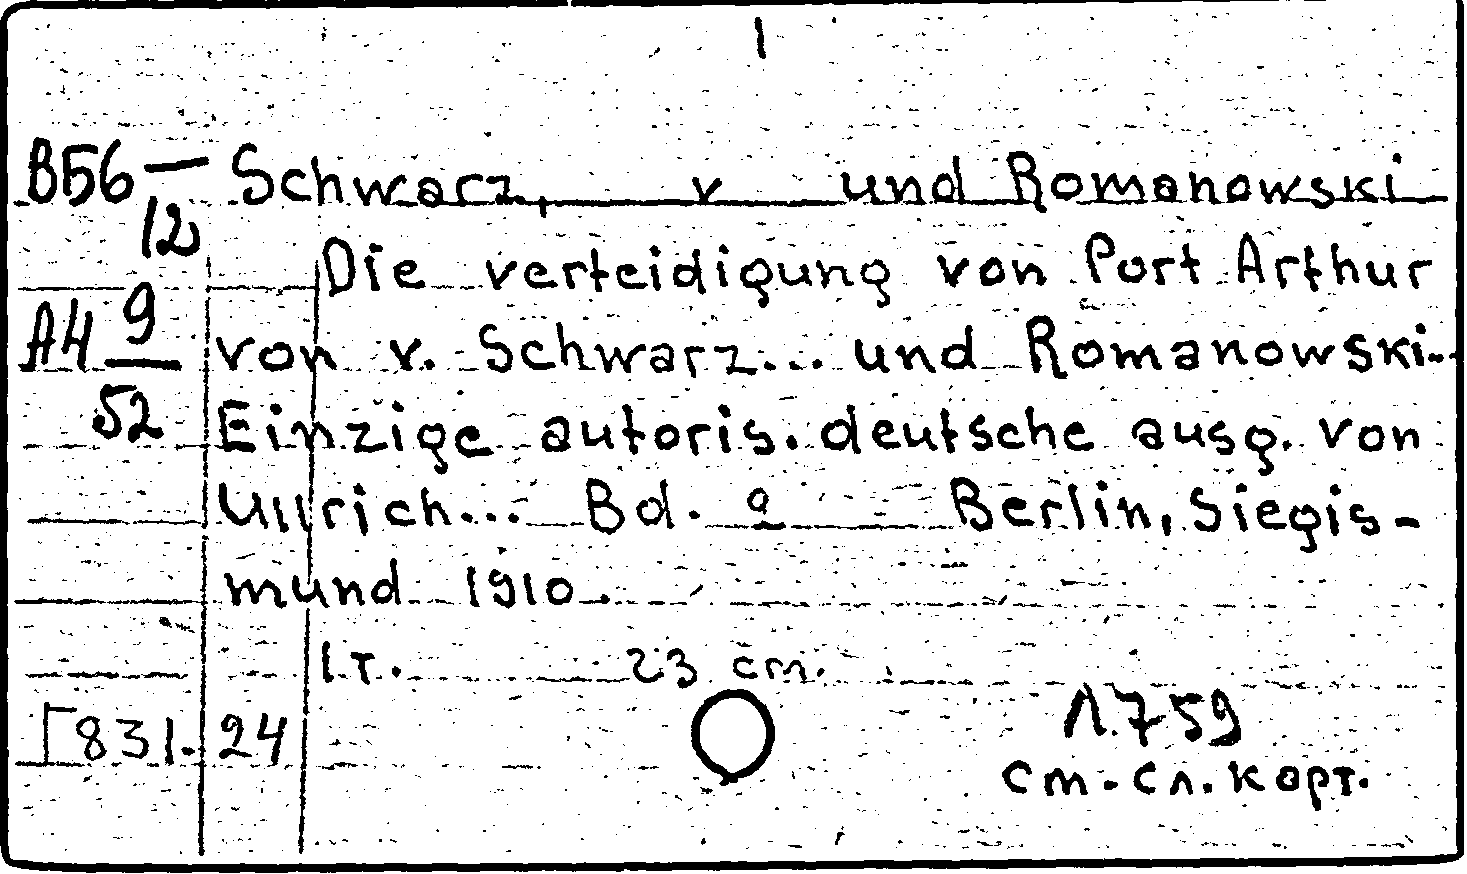 1
В56-12 Schwarz, v und Romanowski
Die verteidigung von Port Arthur
А4 9/52 von v. Schwarz... und Romanowski..
Einzige autoris. deutsche ausg. von
Ullrich... Bd. 2 Berlin, Siegis-
mund 1910.
1 т. 23 cm.
Г831.24
Л.759
см. сл. карт.